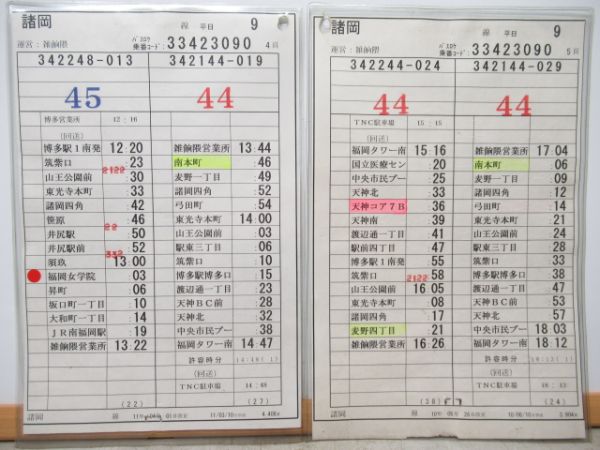 諸岡 線 平日 9
運営：雑餉隈 バスロケ乗番コード： 33423090 4頁
342248-013 342144-019
45 44
博多営業所 12：16
(回送)
博多駅1南発 12 20 雑餉隈営業所 13 44
筑紫口 ：23 南本町 ：46
2122
山王公園前 ：30 麦野一丁目 ：49
東光寺本町 ：33 諸岡四角 ：52
諸岡四角 ：42 弓田町 ：54
笹原 ：46 東光寺本町 14 00
22
井尻駅 ：50 山王公園前 ：03
井尻駅前 ：52 駅東三丁目 ：06
須玖 13 00 筑紫口 ：10
福岡女学院 ：03 博多駅博多口 ：15
昇町 ：06 渡辺通一丁目 ：23
坂口町一丁目 ：10 天神BC前 ：28
大和町一丁目 ：14 天神北 ：32
JR南福岡駅 ：19 中央市民プー ：38
雑餉隈営業所 13 22 福岡タワー南 14 47
許容時分 (14:48(1)
(回送)
TNC駐車場 14：48
(22) (27)
諸岡 線
諸岡 線 平日 9
運営：雑餉隈 バスロケ乗番コード： 33423090 5頁
342244-024 342144-029
44 44
TNC駐車場 15：15
(回送)
福岡タワー南 15 16 雑餉隈営業所 17 04
国立医療セン ：20 南本町 ：06
中央市民プー ：25 麦野一丁目 ：09
天神北 ：33 諸岡四角 ：12
天神コア7B ：36 弓田町 ：14
天神南 ：39 東光寺本町 ：21
渡辺通一丁目 ：41 山王公園前 ：24
駅前四丁目 ：47 駅東三丁目 ：28
博多駅1南発 ：55 筑紫口 ：33
筑紫口 ：58 博多駅博多口 ：38
2122
山王公園前 16 05 渡辺通一丁目 ：47
東光寺本町 ：08 天神BC前 ：53
諸岡四角 ：17 天神北 ：57
麦野四丁目 ：21 中央市民プー 18 03
雑餉隈営業所 16 26 福岡タワー南 18 12
許容時分
(回送)
TNC駐車場
(24)
諸岡 線